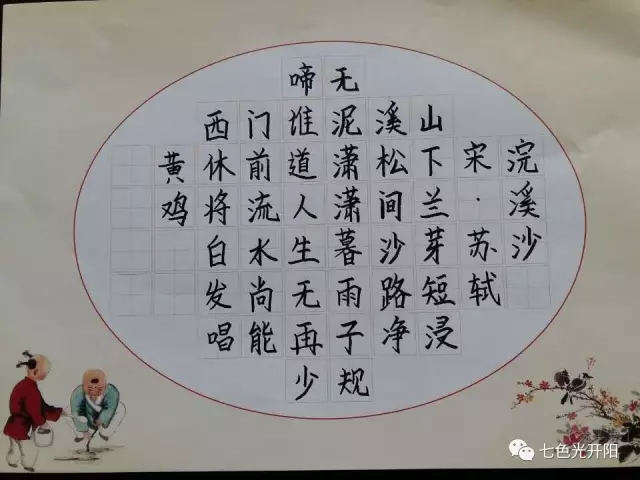 浣溪沙
宋·苏轼
山下兰芽短浸
溪松间沙路净
无泥潇潇暮雨子规
啼谁道人生无再少
门前流水尚能
西休将白发唱
黄鸡
七色光开阳